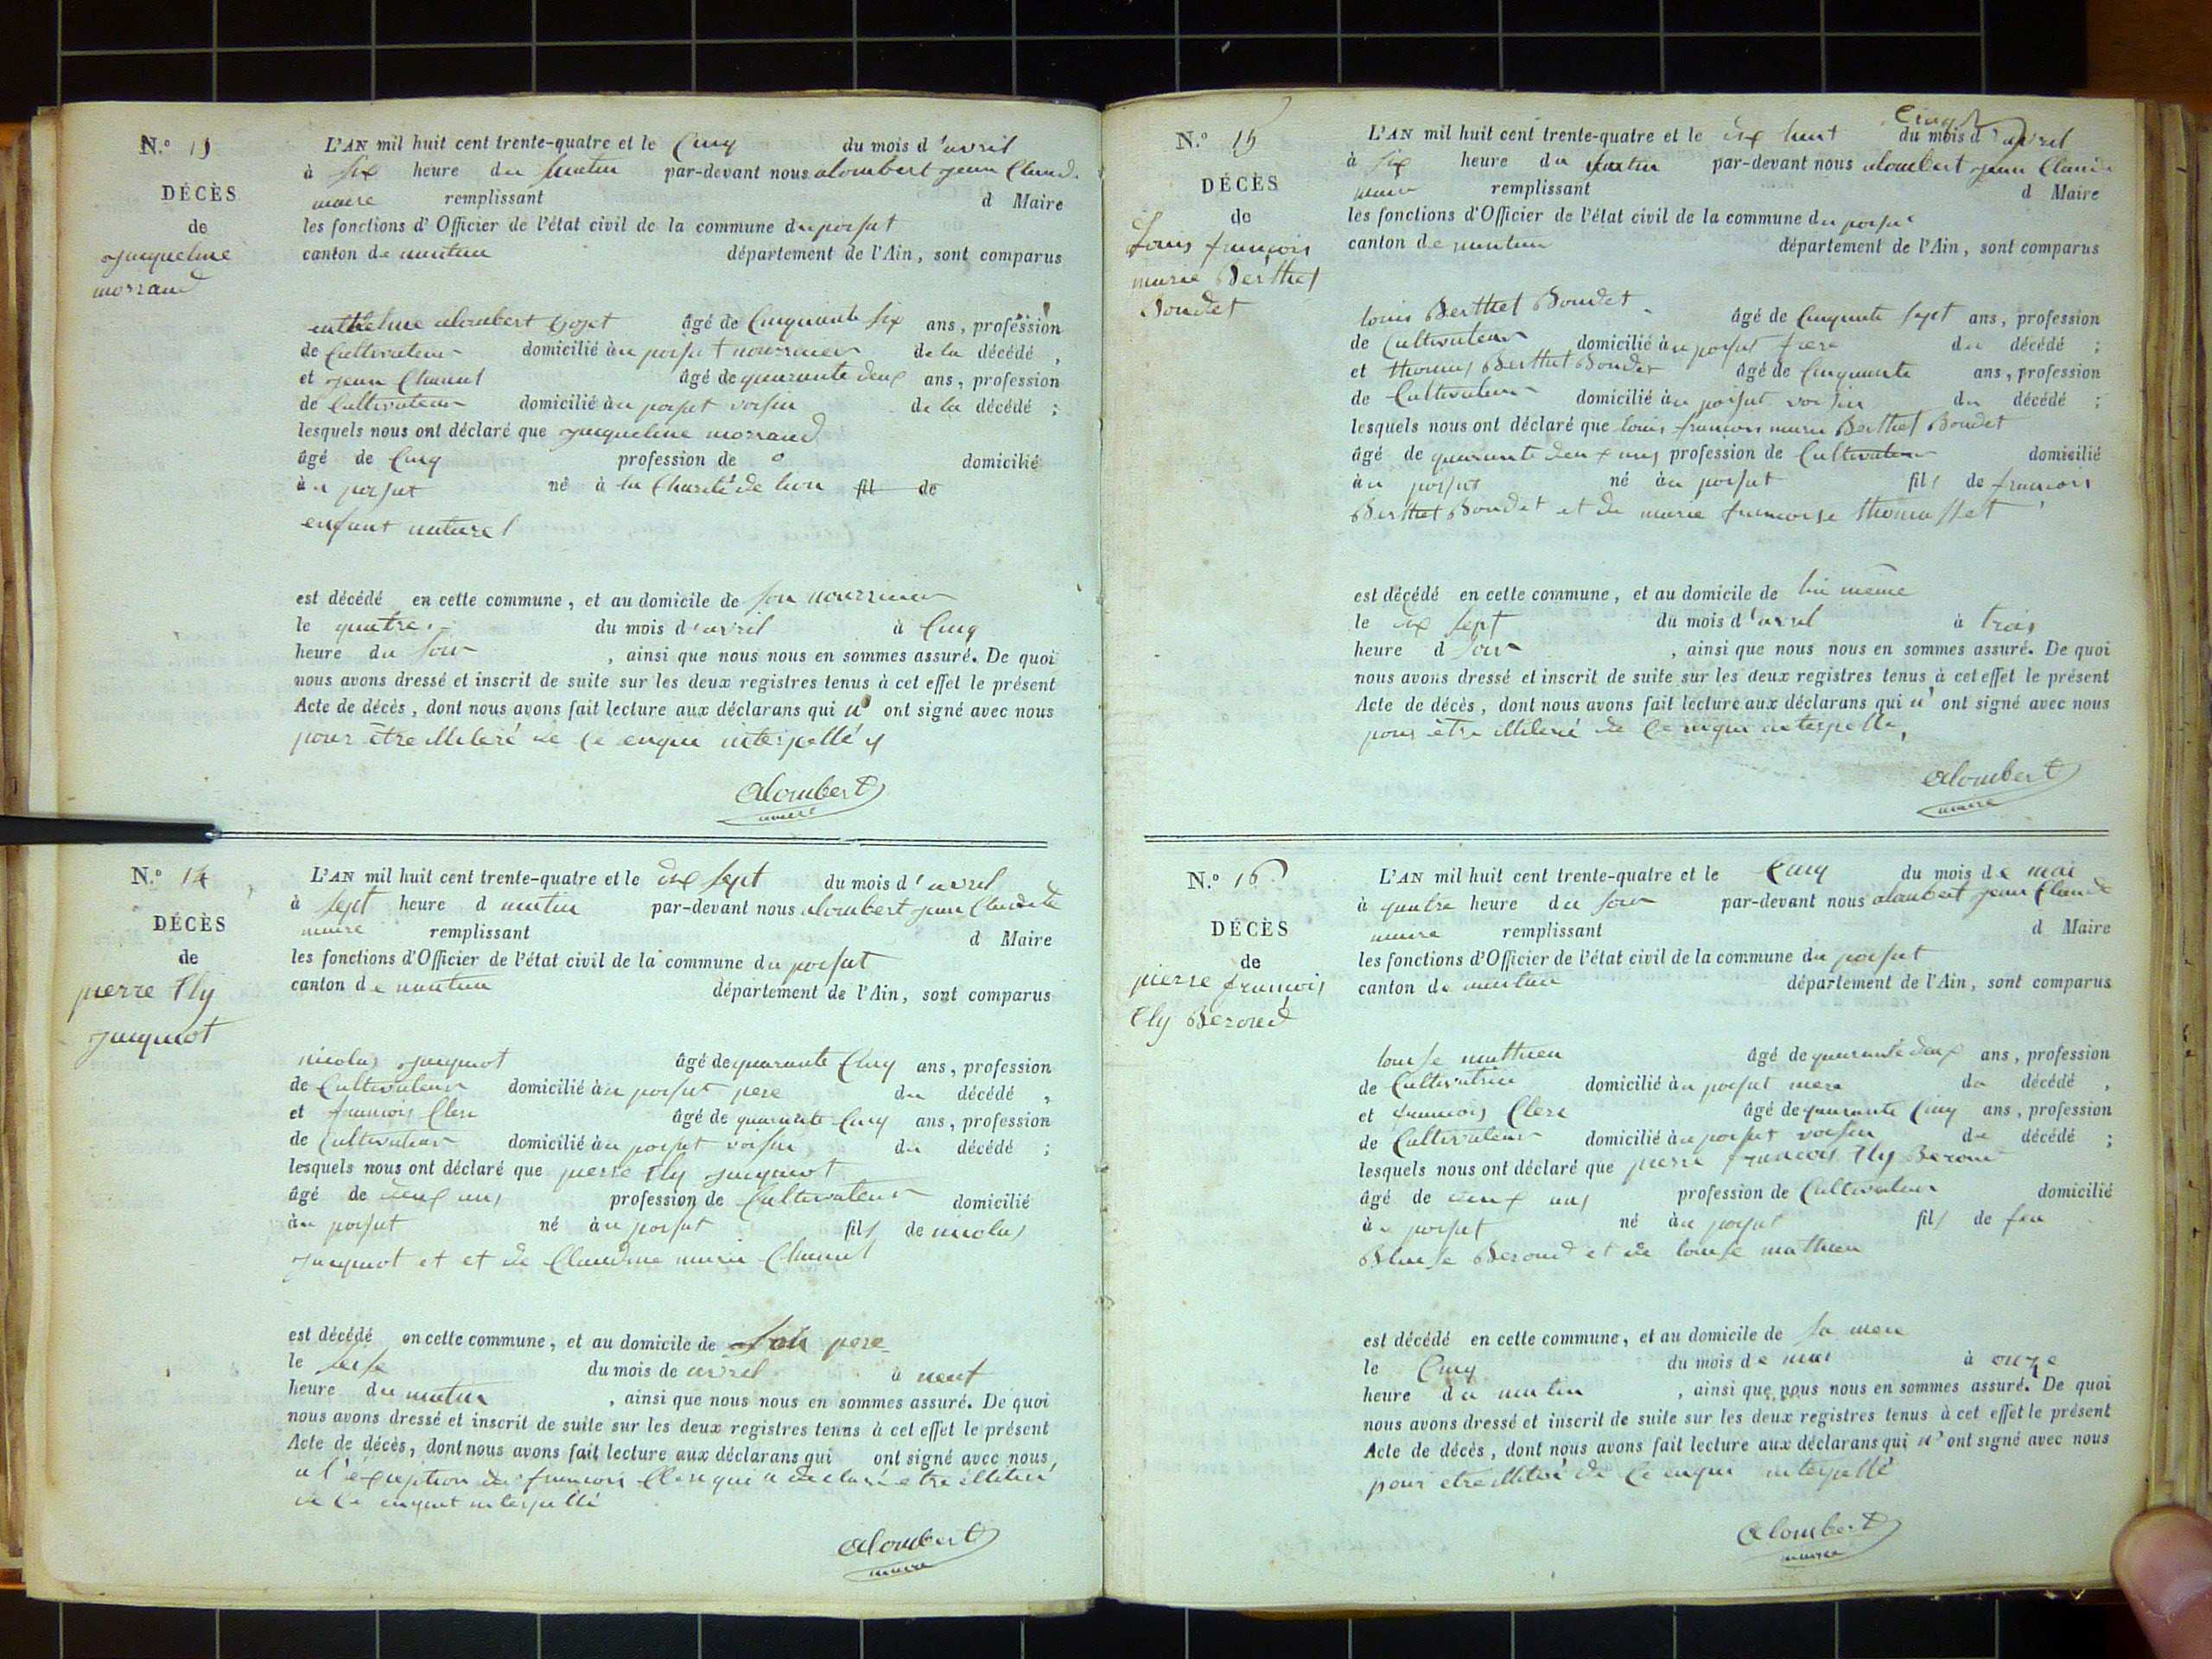 N.º 13
DÉCÈS
de
jacqueline
morrand
L'AN mil huit cent trente-quatre et le Cinq du mois d'avril
à six heure du matin par-devant nous alombert jean Claude
maire remplissant d Maire
les fonctions d'Officier de l'état civil de la commune du poisat
canton de nantua département de l'Ain, sont comparus
anthelme alombert goget âgé de Cinquante six ans, profession
de Cultivateur domicilié au poisat nourricier de la décédé,
et jean Chanal âgé de quarante deux ans, profession
de Cultivateur domicilié au poisat voisin de la décédé;
lesquels nous ont déclaré que jacqueline morrand
âgé de Cinq profession de o domicilié
au poisat né à la Charité de lion fil de
enfant naturel
est décédé en cette commune, et au domicile de son nourricier
le quatre du mois d'avril à Cinq
heure du soir, ainsi que nous nous en sommes assuré. De quoi
nous avons dressé et inscrit de suite sur les deux registres tenus à cet effet le présent
Acte de décès, dont nous avons fait lecture aux déclarans qui n' ont signé avec nous
pour être illiteré de ce enqui interpellé
alombert
maire
N.º 14
DÉCÈS
de
pierre Ely
jacquiot
L'AN mil huit cent trente-quatre et le dix sept du mois d'avril
à sept heure d matin par-devant nous alombert jean Claude
maire remplissant d Maire
les fonctions d'Officier de l'état civil de la commune du poisat
canton de nantua département de l'Ain, sont comparus
nicolas jacquiot âgé de quarante Cinq ans, profession
de Cultivateur domicilié au poisat pere du décédé,
et francois Clerc âgé de quarante Cinq ans, profession
de Cultivateur domicilié au poisat voisin du décédé;
lesquels nous ont déclaré que pierre Ely jacquiot
âgé de deux ans profession de Cultivateur domicilié
au poisat né au poisat fils de nicolas
jacquiot et et de Claudine marie Chanal
est décédé en cette commune, et au domicile de son pere
le seise du mois de avril à neuf
heure du matin, ainsi que nous nous en sommes assuré. De quoi
nous avons dressé et inscrit de suite sur les deux registres tenus à cet effet le présent
Acte de décès, dont nous avons fait lecture aux déclarans qui ont signé avec nous,
a l'exception de francois Clerc qui a declaré etre illiteré
de ce enquit interpellé
alombert
maire
N.º 15
DÉCÈS
de
Louis francois
marie Berthet
Boudet
Cinq
L'AN mil huit cent trente-quatre et le dix huit du mois d'avril
à six heure du matin par-devant nous alombert jean Claude
maire remplissant d Maire
les fonctions d'Officier de l'état civil de la commune du poisat
canton de nantua département de l'Ain, sont comparus
louis Berthet Boudet âgé de Cinquante sept ans, profession
de Cultivateur domicilié au poisat frere du décédé;
et thomas Berthet Boudet âgé de Cinquante ans, profession
de Cultivateur domicilié au poisat voisin du décédé;
lesquels nous ont déclaré que louis francois marie Berthet Boudet
âgé de quarante deux ans profession de Cultivateur domicilié
au poisat né au poisat fils de francois
Berthet Boudet et de marie francoise thomasset
est décédé en cette commune, et au domicile de lui même
le dix sept du mois d'avril à trois
heure d soir, ainsi que nous nous en sommes assuré. De quoi
nous avons dressé et inscrit de suite sur les deux registres tenus à cet effet le présent
Acte de décès, dont nous avons fait lecture aux déclarans qui n' ont signé avec nous
pour être illiteré de ce enqui interpellé,
alombert
maire
N.º 16
DÉCÈS
de
pierre francois
Ely Beroud
L'AN mil huit cent trente-quatre et le Cinq du mois de mai
à quatre heure du soir par-devant nous alombert jean Claude
maire remplissant d Maire
les fonctions d'Officier de l'état civil de la commune du poisat
canton de nantua département de l'Ain, sont comparus
louise mathieu âgé de quarante deux ans, profession
de Cultivatrice domicilié au poisat mere du décédé,
et francois Clerc âgé de quarante Cinq ans, profession
de Cultivateur domicilié au poisat voisin du décédé;
lesquels nous ont déclaré que pierre francois Ely Beroud
âgé de deux ans profession de Cultivateur domicilié
au poisat né au poisat fils de feu
Blaise Beroud et de louise mathieu
est décédé en cette commune, et au domicile de sa mere
le Cinq du mois de mai à onze
heure du matin, ainsi que nous nous en sommes assuré. De quoi
nous avons dressé et inscrit de suite sur les deux registres tenus à cet effet le présent
Acte de décès, dont nous avons fait lecture aux déclarans qui n' ont signé avec nous
pour etre illiteré de ce enqui interpellé
alombert
maire